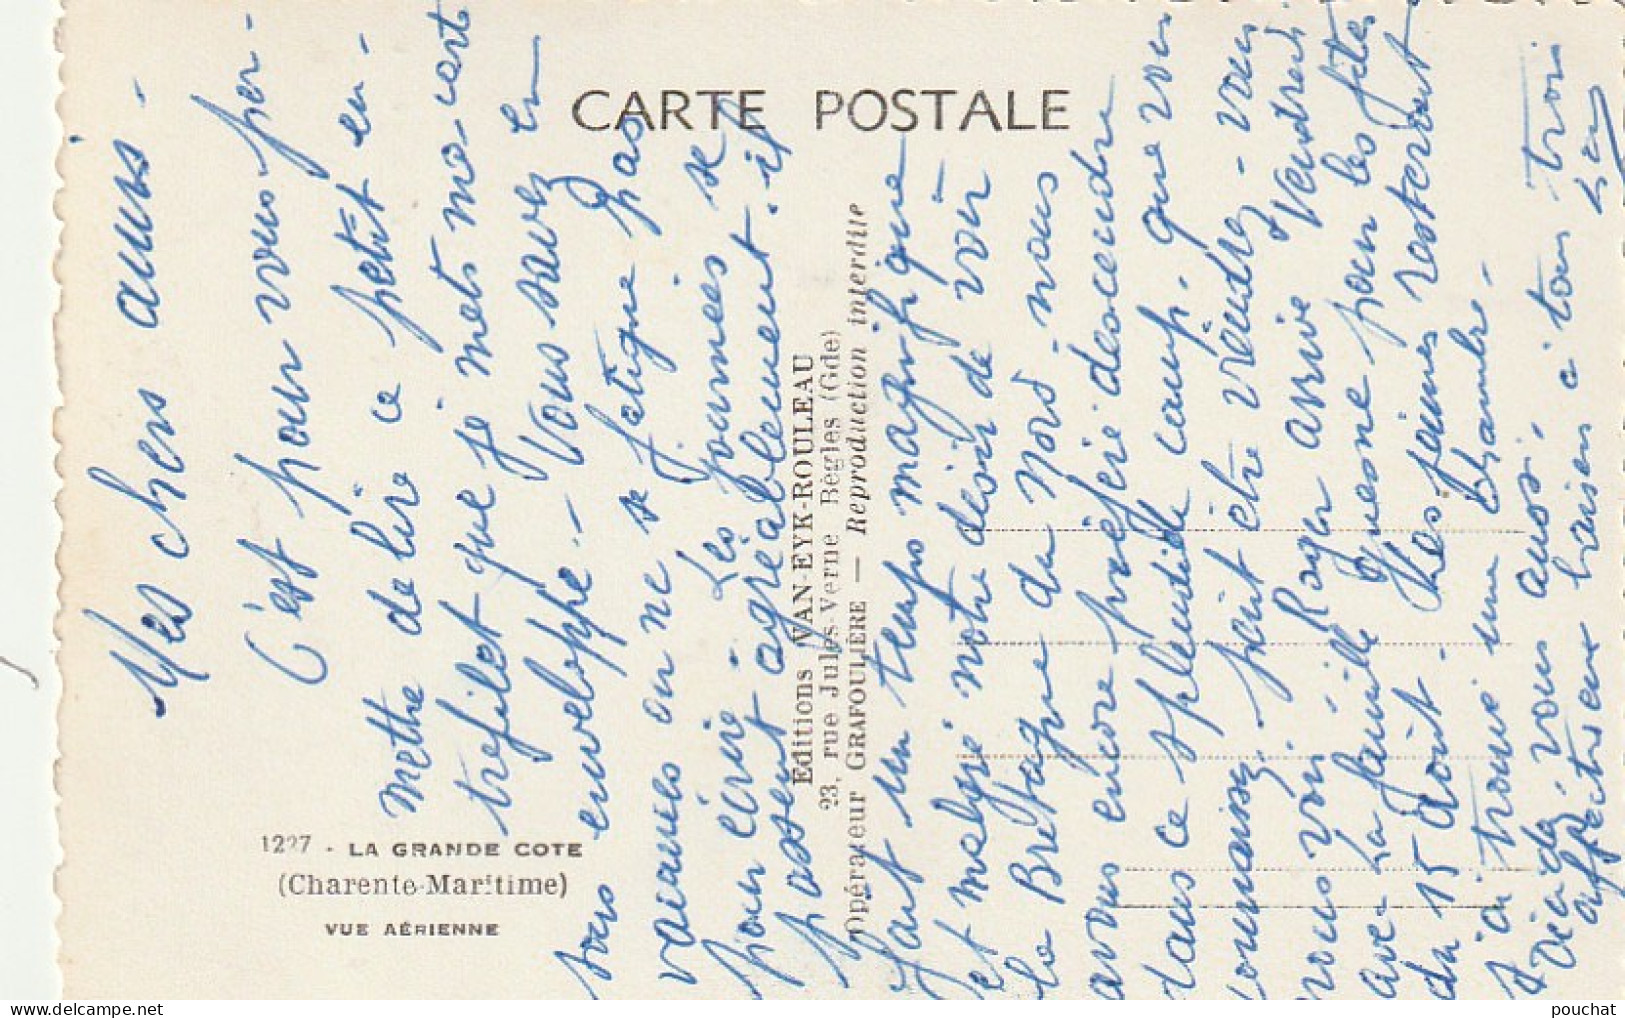 CARTE POSTALE
1227 - LA GRANDE COTE
(Charente-Maritime)
VUE AÉRIENNE
Editions VAN-EYK-ROULEAU
23, rue Jules-Verne Bègles (Gde)
Opérateur GRAFOULIÈRE — Reproduction interdite
Mes chers amis -
C'est pour vous per-
mettre de lire ce petit en-
trefilet que je mets ma carte
sous enveloppe - Vous savez en
vacances on ne se fatigue pas
pour écrire - Les journées se
passent agréablement. il
fait un temps magnifique
et malgré notre désir de voir
la Bretagne du Nord nous
avons encore préféré descendre
dans ce splendide camp. que vous
connaissez. peut être viendrez-vous
nous voir. Roger arrive Vendredi
avec la famille Quesne pour les fêtes
du 15 Août. Les jeunes resteront
j'ai trouvé une chambre -
Viendez vous aussi.
affectueux baisers à tous trois